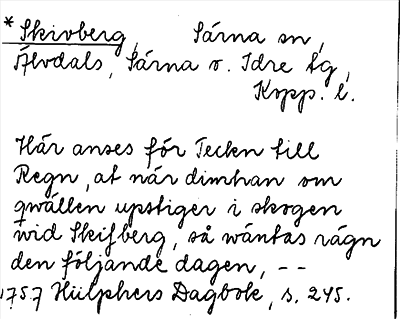 * Skivberg, Särna sn,
Älvdals, Särna o. Idre tg,
Kopp. l.
Här anses för Tecken till
Regn, at när dimhan om
qwällen upstiger i skogen
wid Skifberg, så wäntas rägn
den följande dagen, --
1757 Hülphers Dagbok, s. 245.